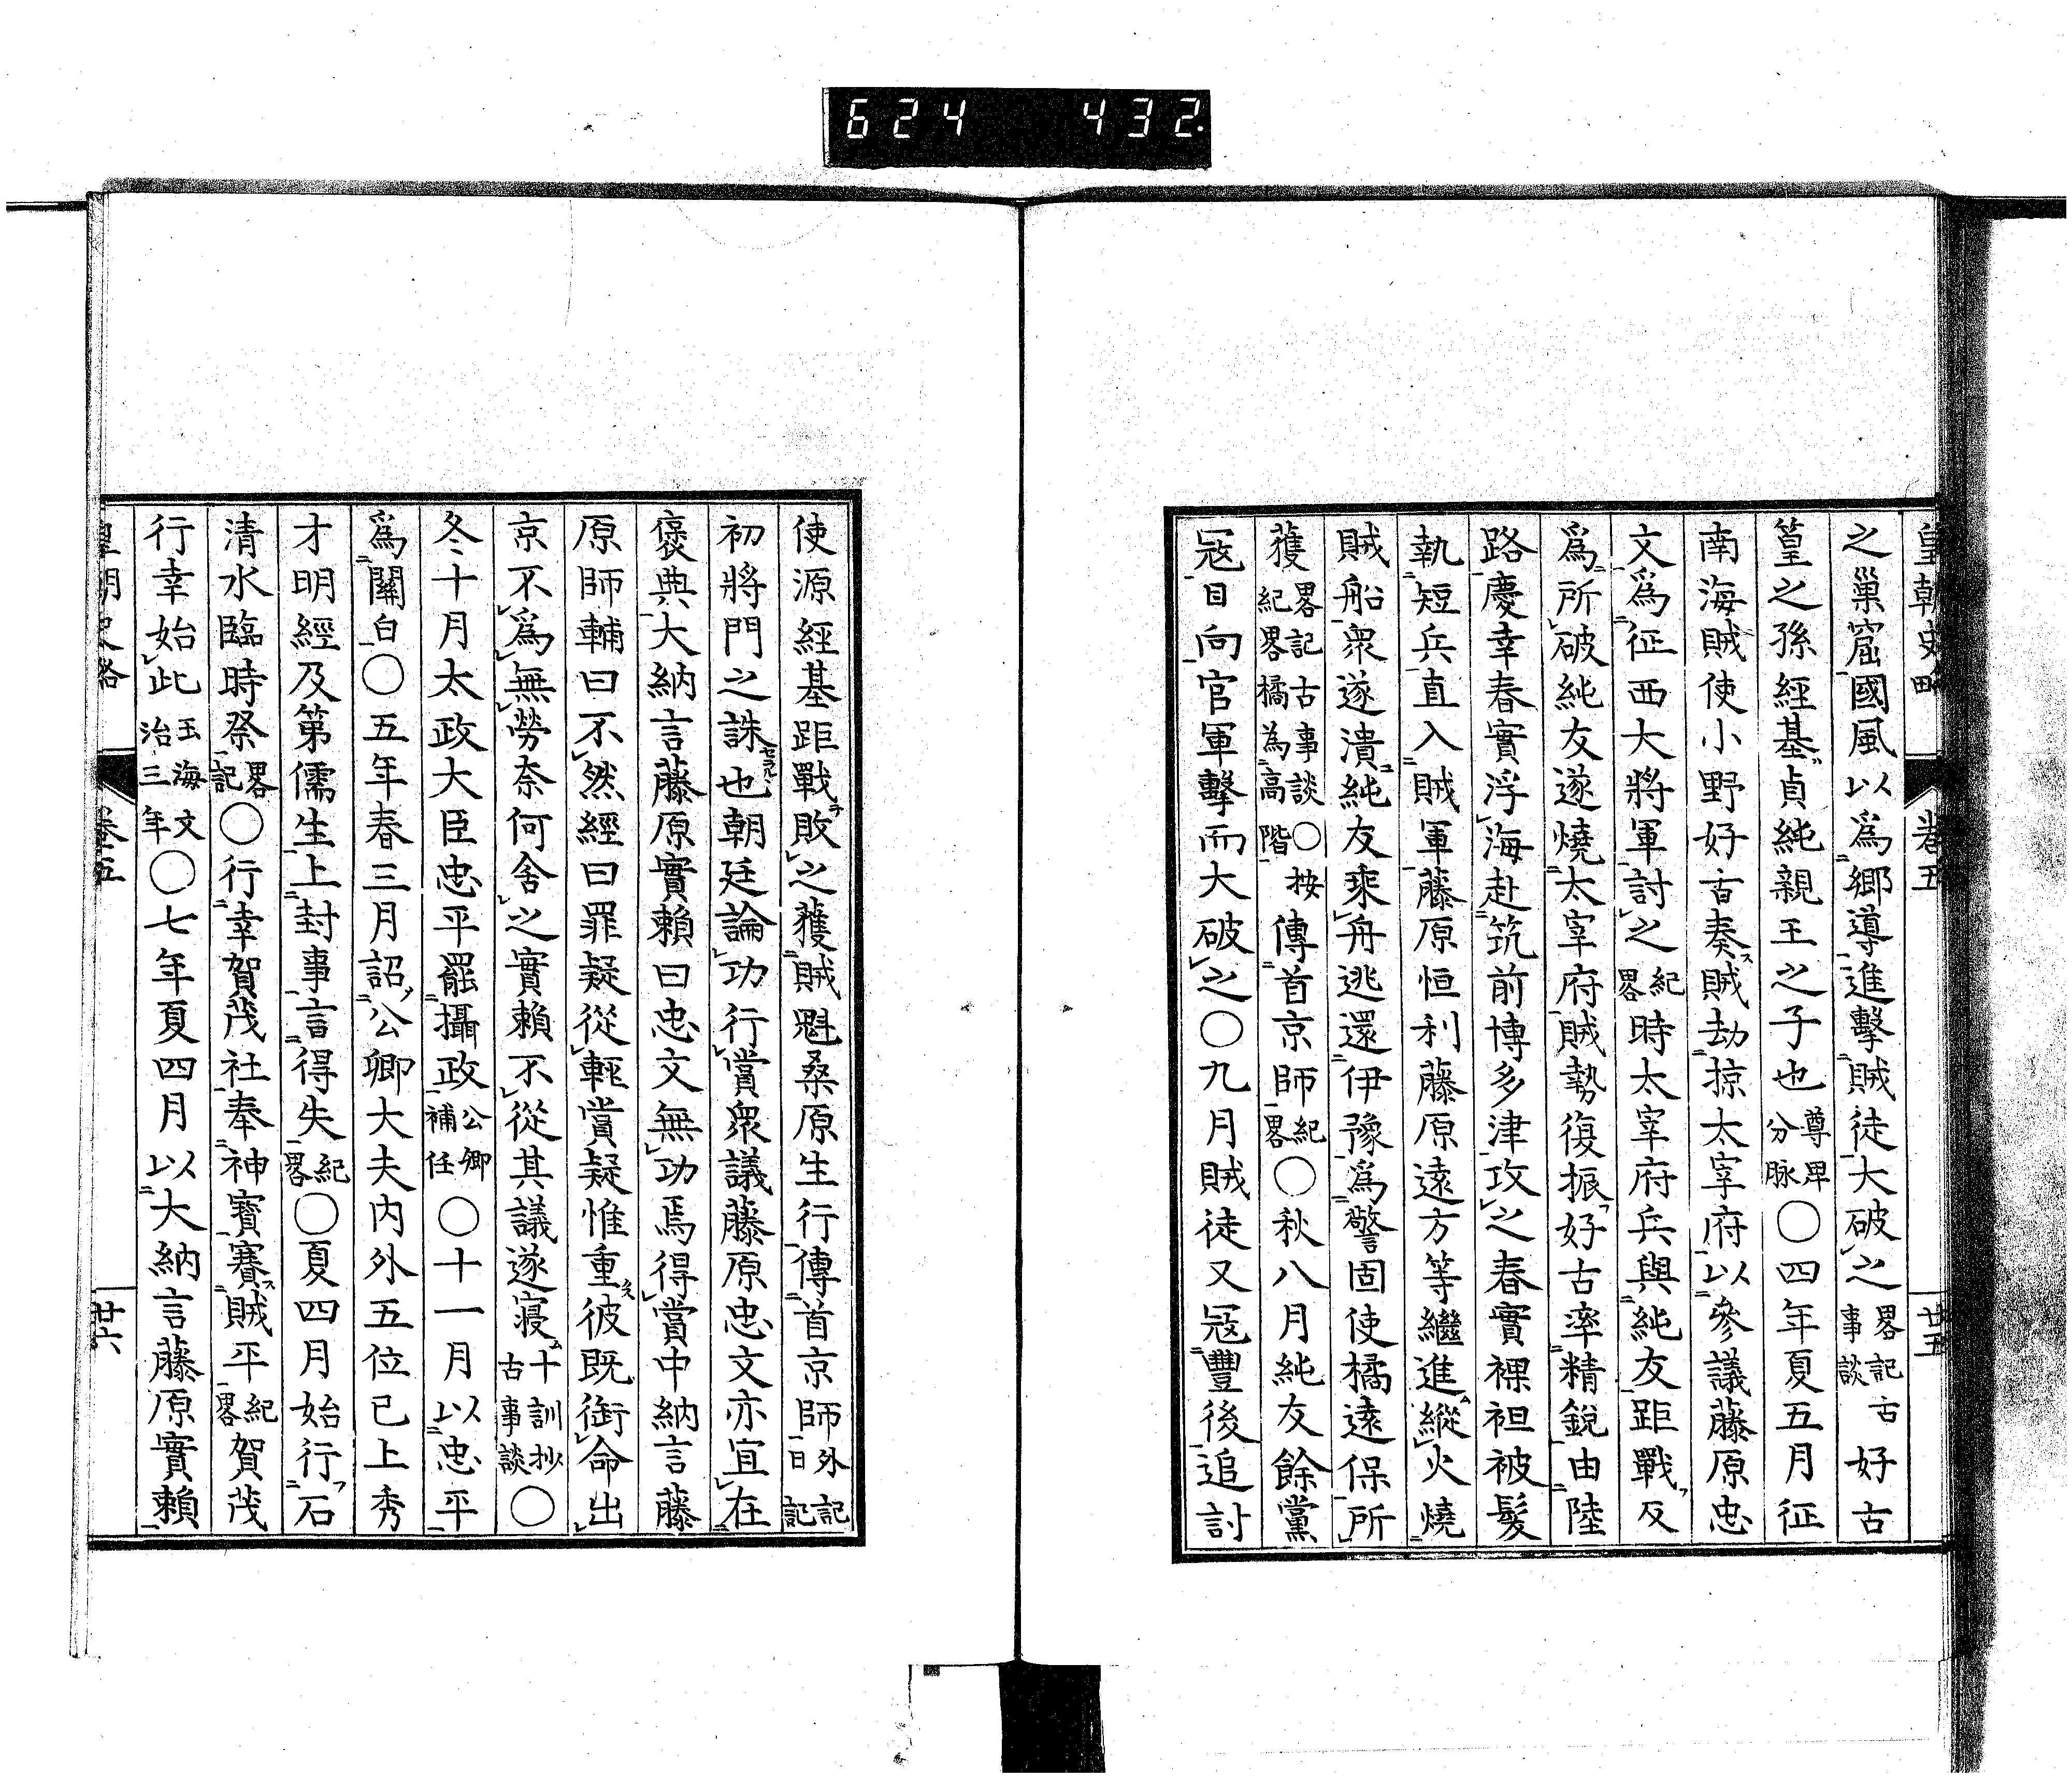 624 432
皇朝史略 卷五 廿五
之巢窟國風以爲鄕導進擊賊徒大破之畧記古事談好古
篁之孫經基貞純親王之子也尊卑分脉〇四年夏五月征
南海賊使小野好古奏賊劫掠太宰府以參議藤原忠
文爲征西大將軍討之紀畧時太宰府兵與純友距戰反
爲所破純友遂燒太宰府賊勢復振好古率精銳由陸
路慶幸春實浮海赴筑前博多津攻之春實裸袒被髮
執短兵直入賊軍藤原恒利藤原遠方等繼進縱火燒
賊船衆遂潰純友乘舟逃還伊豫爲警固使橘遠保所
獲畧記古事談〇按紀畧橘為高階傳首京師紀畧〇秋八月純友餘黨
寇日向官軍擊而大破之〇九月賊徒又寇豐後追討
使源經基距戰敗之獲賊魁桑原生行傳首京師外記日記
初將門之誅也朝廷論功行賞衆議藤原忠文亦宜在
襃典大納言藤原實賴曰忠文無功焉得賞中納言藤
原師輔曰不然經曰罪疑從輕賞疑惟重彼既銜命出
京不爲無勞奈何舍之實賴不從其議遂寢十訓抄古事談〇
冬十月太政大臣忠平罷攝政公卿補任〇十一月以忠平
爲關白〇五年春三月詔公卿大夫内外五位已上秀
才明經及第儒生上封事言得失紀畧〇夏四月始行石
清水臨時祭畧記〇行幸賀茂社奉神寶賽賊平紀畧賀茂
行幸始此玉海文治三年〇七年夏四月以大納言藤原實賴
皇朝史略 卷五 廿六